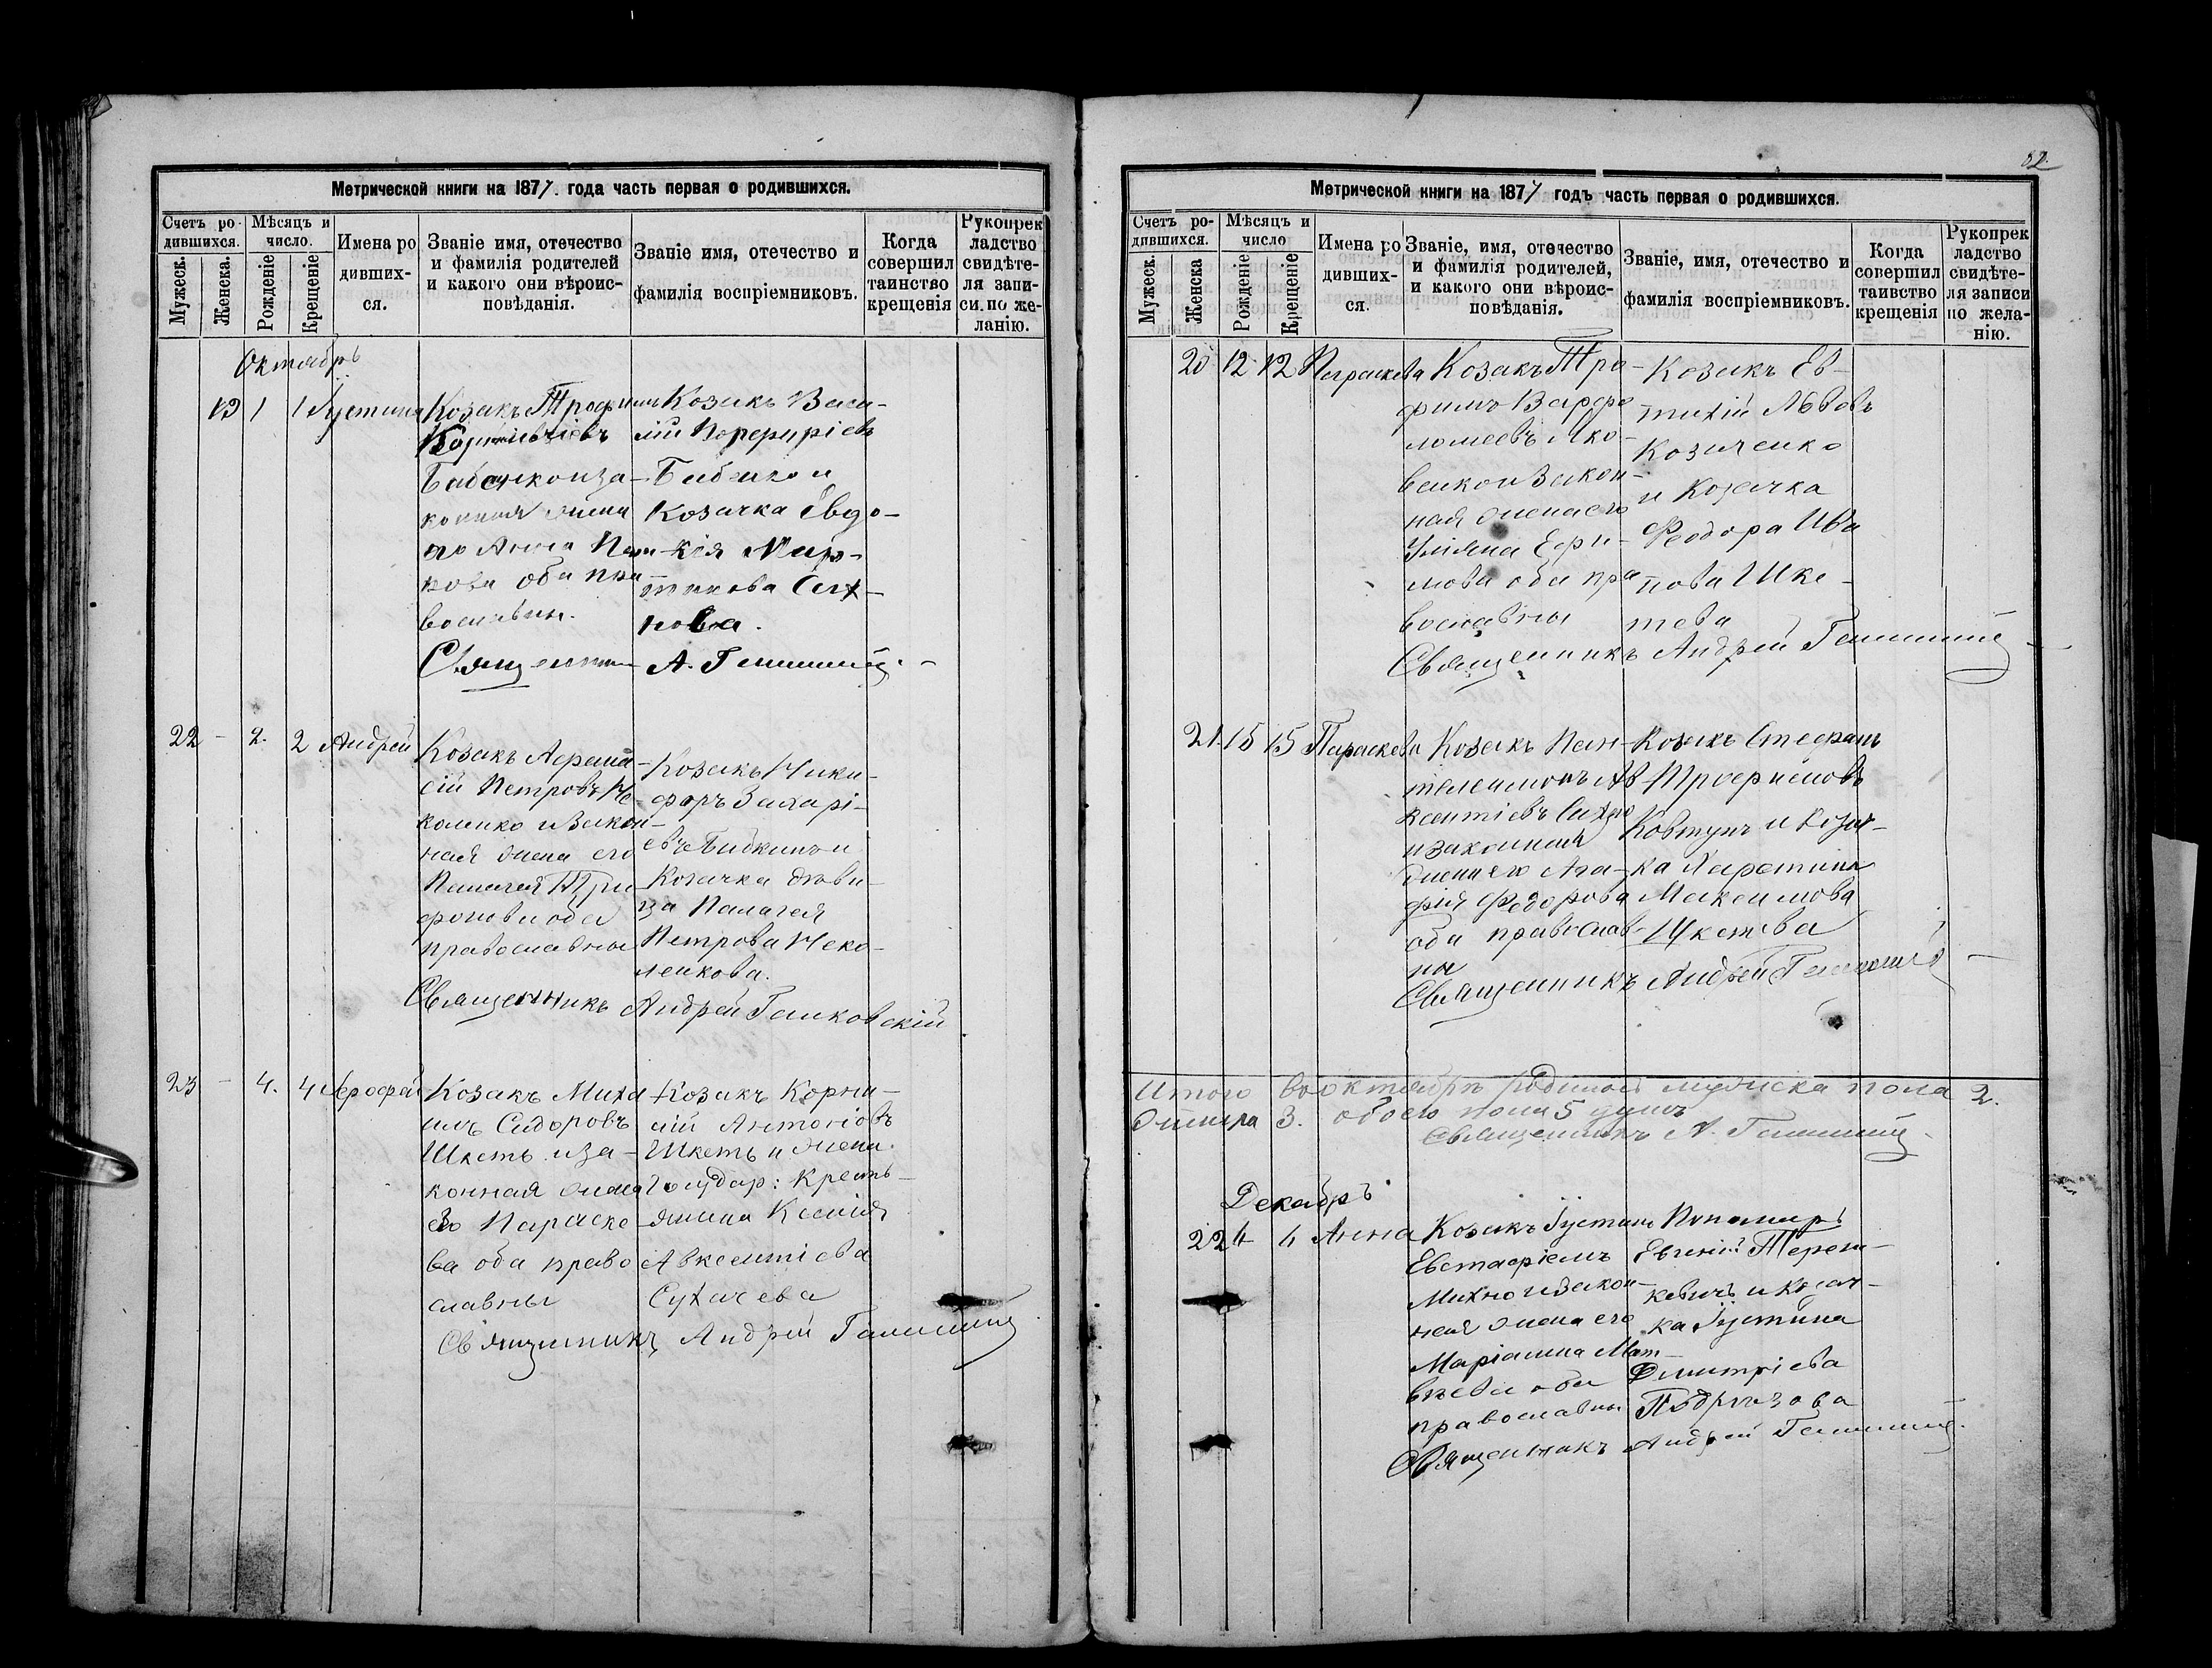 Метрической книги на 1877. года часть первая о родившихся.
Счетъ ро-
дившихся.
Мужеск.
Женска.
Мѣсяцъ и
число.
Рожденіе
Крещеніе
Имена ро
дивших-
ся.
Званіе имя, отечество
и фамилія родителей
и какого они вѣроис-
повѣданія.
Званіе имя, отечество и
фамилія воспріемниковъ.
Когда
совершил
таинство
крещенія
Рукоприк
ладство
свидѣте-
ля запи-
си. по же-
ланію.
Октябрь
19 1 1 Іустина
Козакъ Трофимъ
Бабенко и за-
конная жена
его Анна
кова оба пра
вославны.
Козакъ Васи-
лій Порфиріевъ
Бабенко и
Козачка Евдо-
кія Мар-
нова.
Священник А.
22 - 2. 2 Андрей
Козакъ Афана
сій Петровъ Не
коленко и закон-
ная жена его
Палагея Три
фонова оба
православны
Козакъ Ники-
форъ Захарі-
евъ и
Козачка дѣви-
ца Палагея
Петрова Неко-
ленкова.
Священникъ Андрей Ганковскій
23 - 4. 4 Іерофей
Козакъ Миха
илъ Сидоровъ
Шкеть и за-
конная жена
его Параске
ва оба право
славны
Козакъ Корни-
лій Антоніовъ
Шкеть и жена
Государ: Кресть-
янина Ксенія
Авксентіева
Сухачева
Священникъ Андрей
52.
Метрической книги на 1877 годъ часть первая о родившихся.
Счетъ ро-
дившихся.
Мужеск.
Женска
Мѣсяцъ и
число
Рожденіе
Крещеніе
Имена ро
дивших-
ся.
Званіе, имя, отечество
и фамилія родителей,
и какого они вѣроис-
повѣданія.
Званіе, имя, отечество и
фамилія воспріемниковъ.
Когда
совершил
таивство
крещенія
Рукоприк
ладство
свидѣте-
ля записи
по жела-
нію.
20 12 12 Параскева
Козакъ Тро-
фимъ Варфо
ломеевъ Яко-
венко и закон-
ная жена его
Уліяна Ефи-
мова оба пра
вославны
Козакъ Ев-
тихій Львовъ
Козаченко
и Козачка
Феодора Ива
нова Шке-
тева
Священникъ Андрей
21. 15 15 Параскева
Козакъ Пан-
телеимонъ Ав
ксентіевъ Сихно
и законная
жена его Ага-
фія Федорова
оба православ-
ны
Козакъ Стефанъ
Трофимовъ
Ковтунъ и Козач-
ка Харетина
Максимова
Шкетева
Священникъ Андрей
Итого въ октябрѣ родилось мужеска пола 2.
женска 3. обоего пола 5 душъ
Священникъ А.
Декабрь
22 4 4 Анна
Козакъ Іустинъ
Михно и закон-
ная жена его
Маріанна Мат-
вѣева оба
православны
Пономарь
Евгеній Тереш-
кевичъ и козач-
ка Іустина
Димитріева
Священникъ Андрей